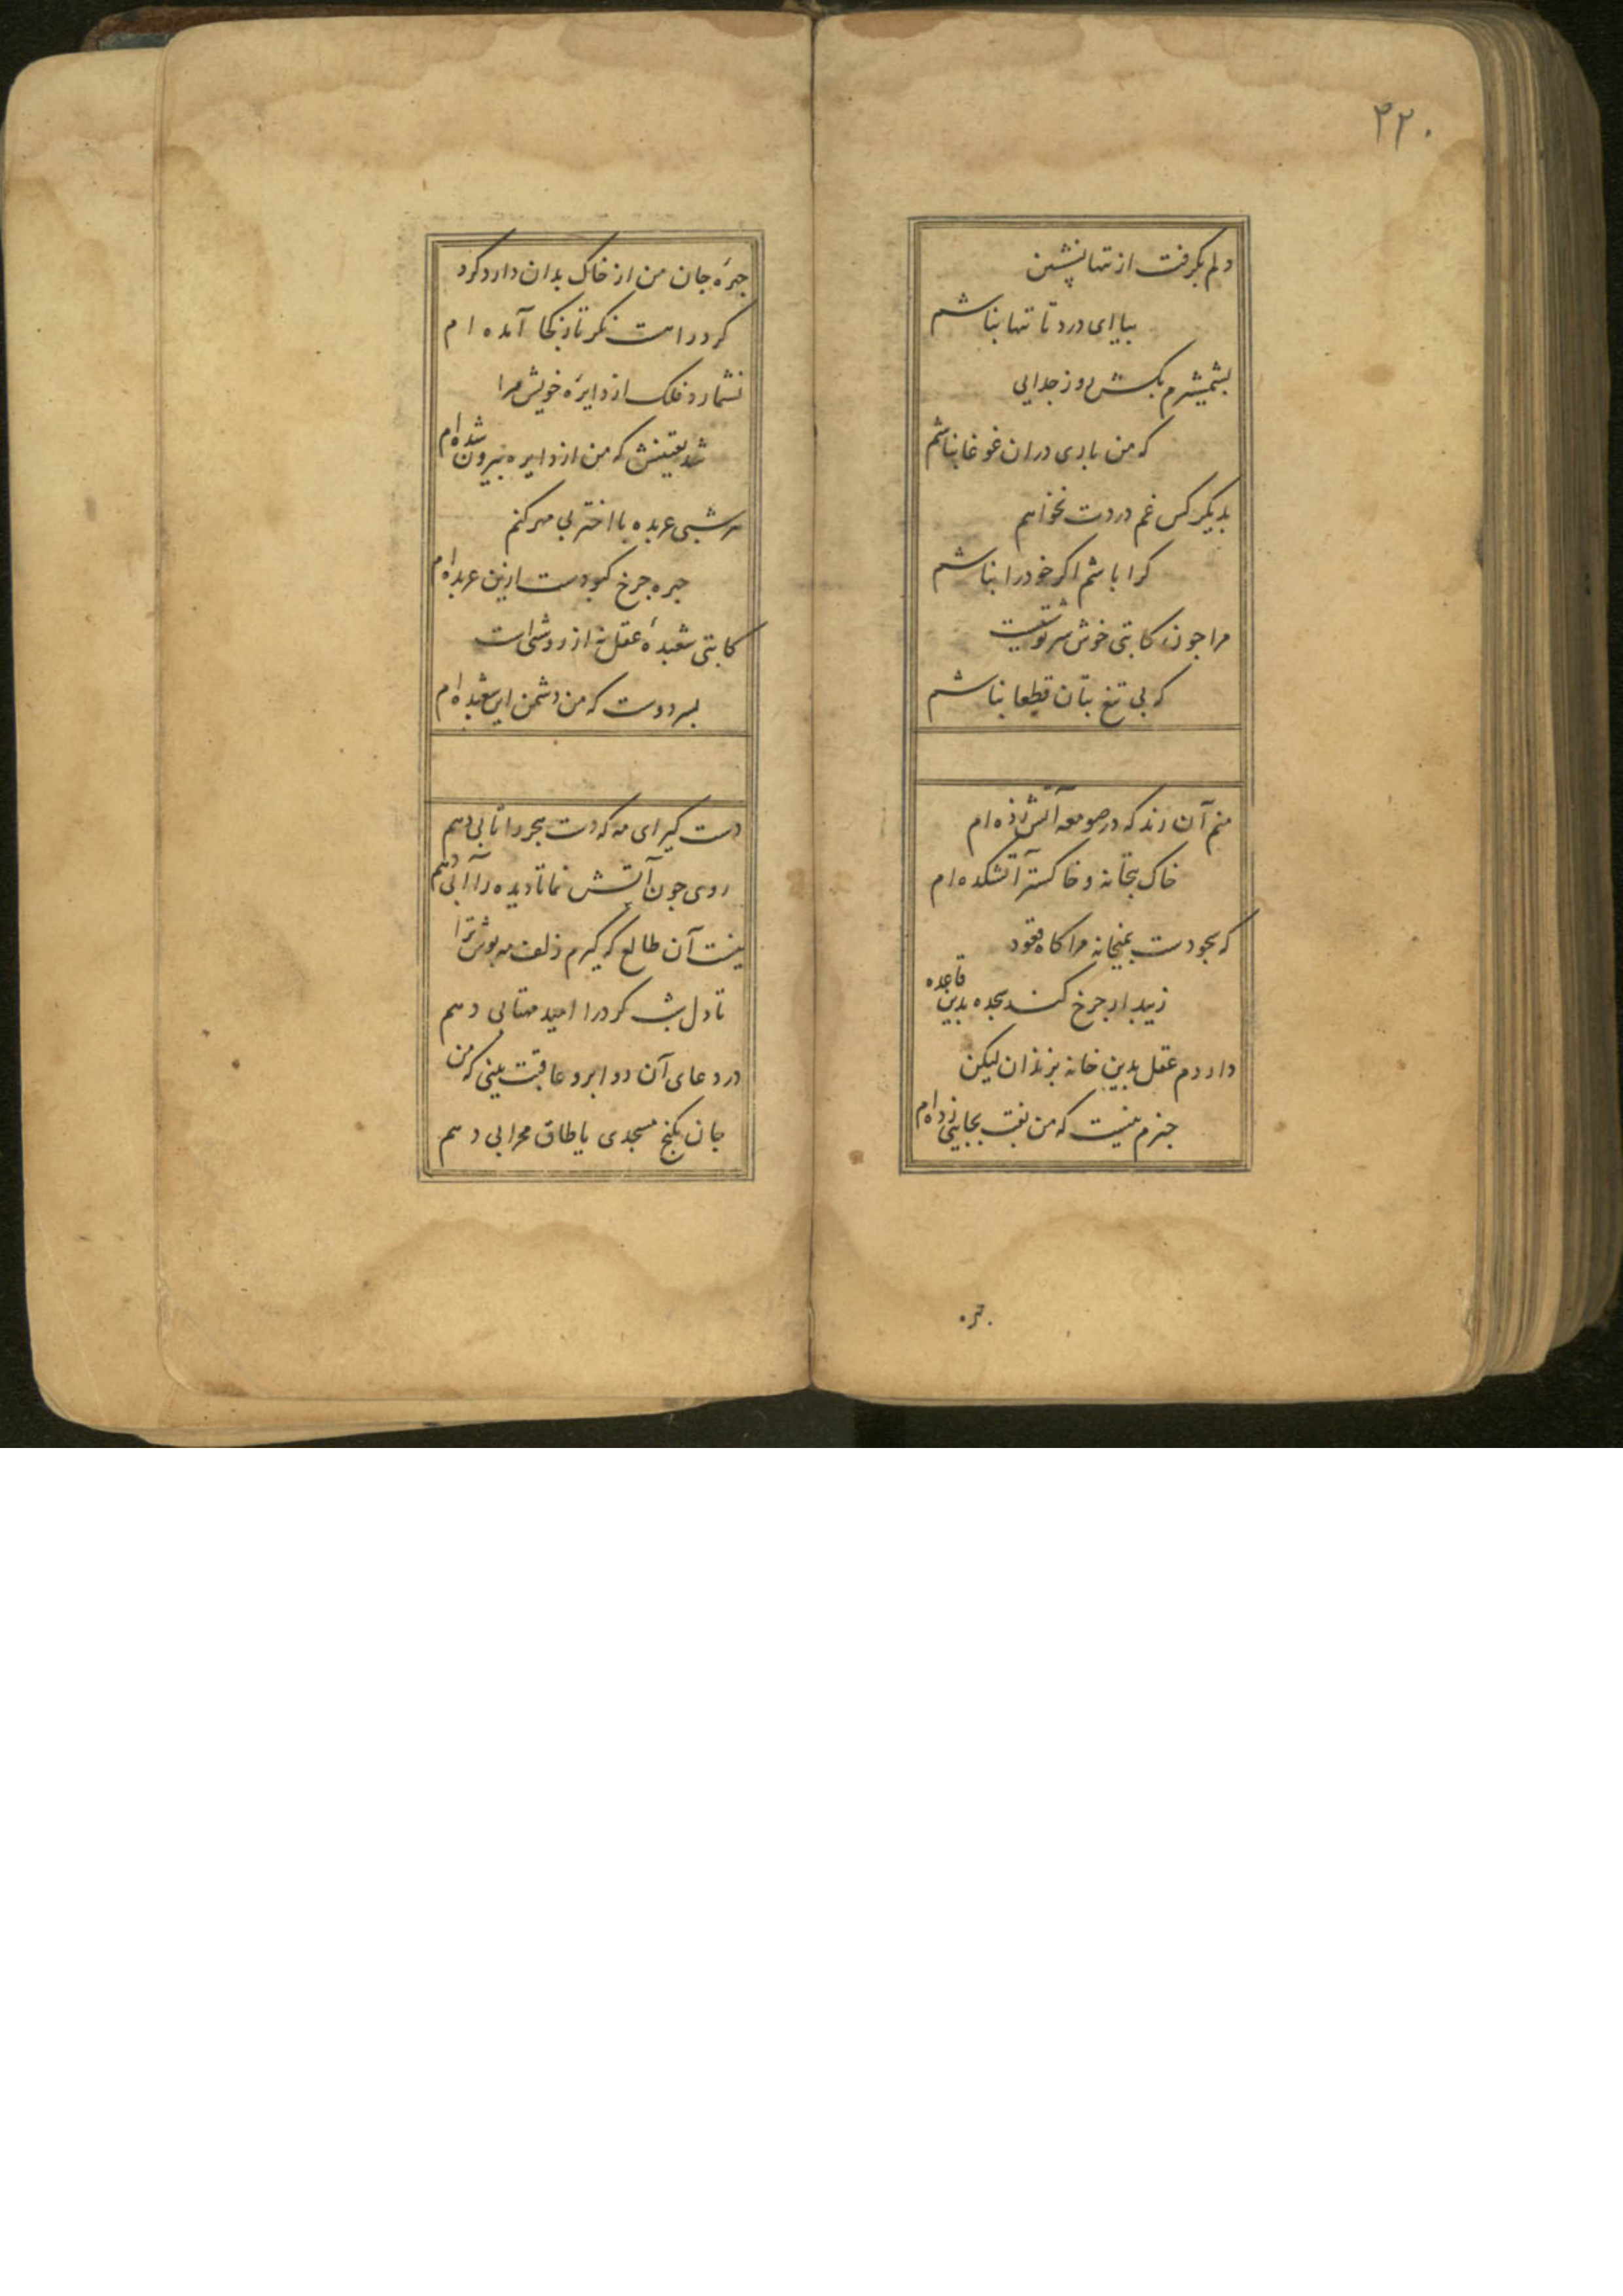 ۲۲۰
دلم بگرفت از تنها نشینی
بیا ای درد تا تنها نباشم
بشمشیرم بکش روز جدایی
که من باری دران غوغا نباشم
بدیگر کس غم دردت نخواهم
کرا باشم اگر خود را نباشم
مرا چون کاتبی خوش سرنوشتیست
که بی تیغ بتان قطعا نباشم
منم آن رند که در صومعه آتش زده ام
خاک بتخانه و خاکستر آتشکده ام
که سجودست بمیخانه مرا گاه قعود
زیبد ار چرخ کند سجده بدین قاعده
دارد م عقل بدین خانه بزندان لیکن
خبرم نیست که من نقب بجایی زده ام
چهره
چهرهٔ جان من از خاک بدان دارد گرد
گرد راهست نگر تا ز کجا آمده ام
نشمارد فلک از دایرهٔ خویش مرا
شد یقینش که من از دایره بیرون شده ام
هر شبی عربده با اختر بی مهر کنم
چهره چرخ کبودست ازین عربده ام
کاتبی شعبدهٔ عقل نه از روشنی است
بسر دوست که من دشمن این شعبده ام
دست گیر ای مه که دست هجر را تابی دهم
روی چون آتش نما تا دیده را آبی دهم
نیست آن طالع که گیرم زلف مه پوش ترا
تا دل شب گرد را امید مهتابی دهم
در دعای آن دو ابرو عاقبت بینی که من
جان بکنج مسجدی یا طاق محرابی دهم